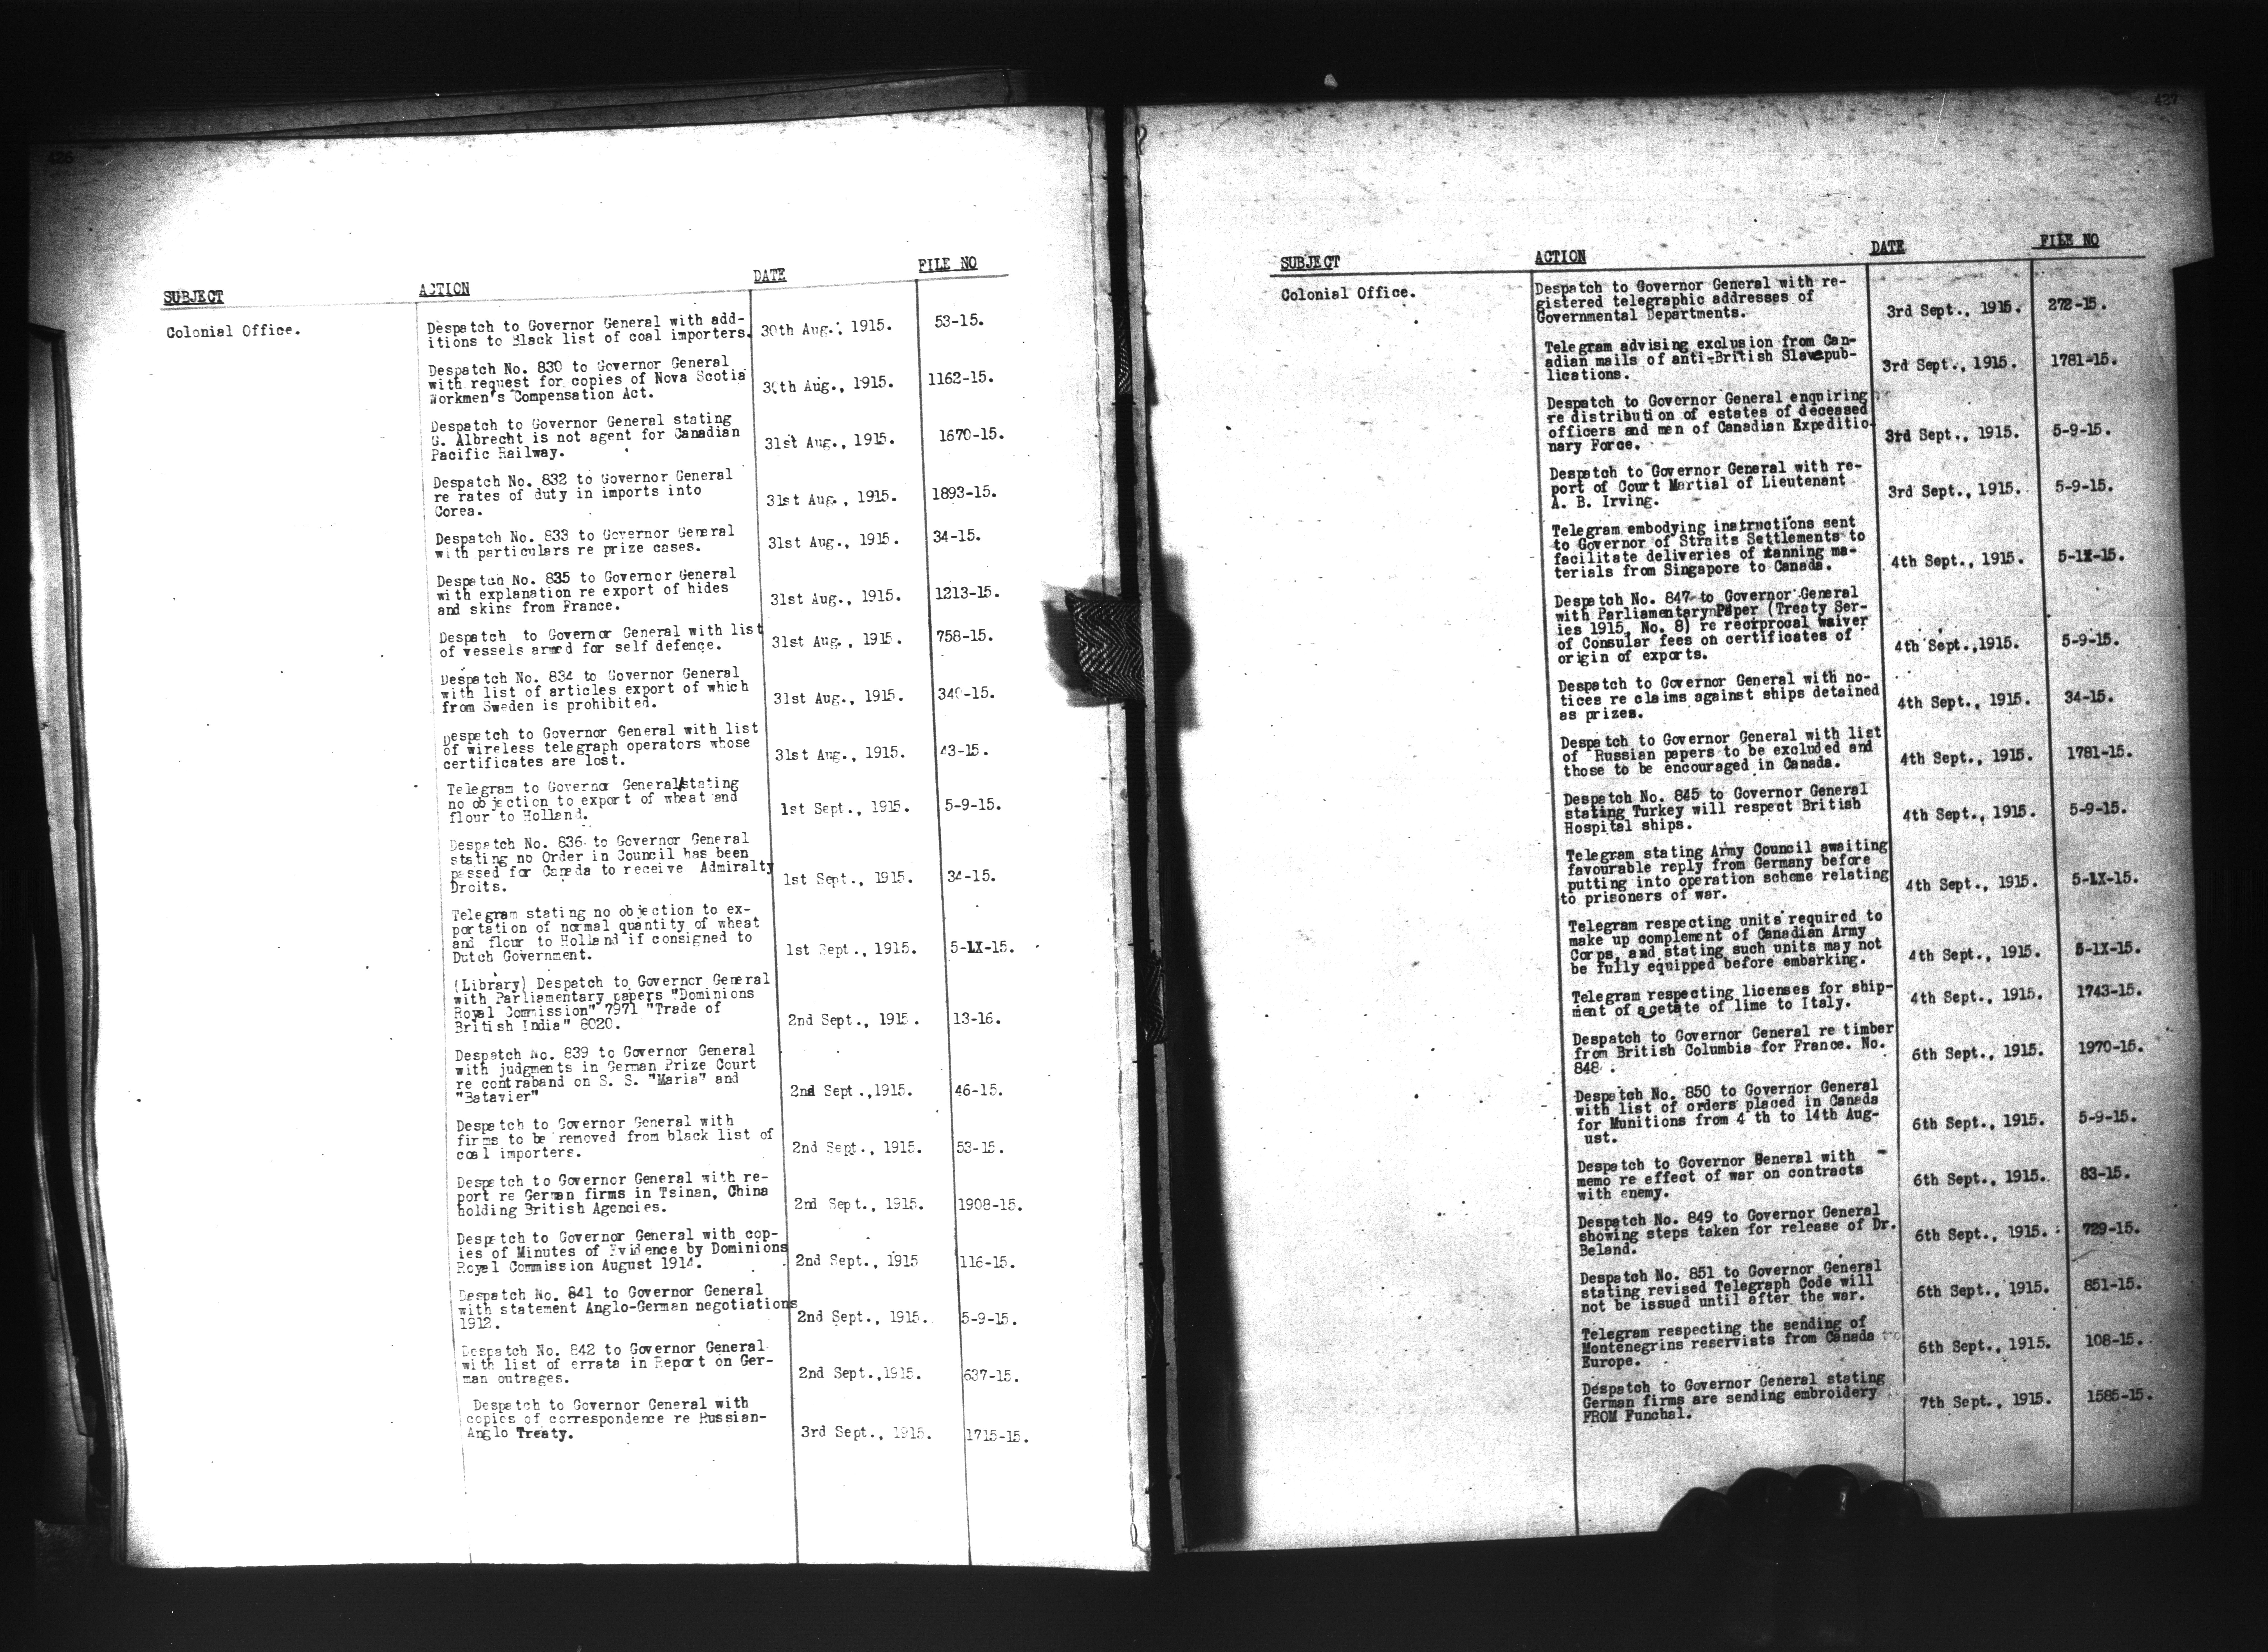 426
SUBJECT ACTION DATE FILE NO
Colonial Office.
Despatch to Governor General with add-
itions to Black list of coal importers. 30th Aug., 1915. 53-15.
Despatch No. 830 to Governor General
with request for copies of Nova Scotia
Workmen's Compensation Act. 30th Aug., 1915. 1162-15.
Despatch to Governor General stating
G. Albrecht is not agent for Canadian
Pacific Railway. 31st Aug., 1915. 1670-15.
Despatch No. 832 to Governor General
re rates of duty in imports into
Corea. 31st Aug., 1915. 1893-15.
Despatch No. 833 to Governor General
with particulars re prize cases. 31st Aug., 1915. 34-15.
Despatch No. 835 to Governor General
with explanation re export of hides
and skins from France. 31st Aug., 1915. 1213-15.
Despatch to Governor General with list
of vessels armed for self defence. 31st Aug., 1915. 758-15.
Despatch No. 834 to Governor General
with list of articles export of which
from Sweden is prohibited. 31st Aug., 1915. 340-15.
Despatch to Governor General with list
of wireless telegraph operators whose
certificates are lost. 31st Aug., 1915. 43-15.
Telegram to Governor General/stating
no objection to export of wheat and
flour to Holland. 1st Sept., 1915. 5-9-15.
Despatch No. 836 to Governor General
stating no Order in Council has been
passed for Canada to receive Admiralty
Droits. 1st Sept., 1915. 34-15.
Telegram stating no objection to ex-
portation of normal quantity of wheat
and flour to Holland if consigned to
Dutch Government. 1st Sept., 1915. 5-1X-15.
(Library) Despatch to Governor General
with Parliamentary papers "Dominions
Royal Commission" 7971 "Trade of
British India" 8020. 2nd Sept., 1915. 13-16.
Despatch No. 839 to Governor General
with judgments in German Prize Court
re contraband on S. S. "Maria" and
"Batavier" 2nd Sept.,1915. 46-15.
Despatch to Governor General with
firms to be removed from black list of
coal importers. 2nd Sept., 1915. 53-15.
Despatch to Governor General with re-
port re German firms in Tsinan, China
holding British Agencies. 2nd Sept., 1915. 1908-15.
Despatch to Governor General with cop-
ies of Minutes of Evidence by Dominions
Royal Commission August 1914. 2nd Sept., 1915 116-15.
Despatch No. 841 to Governor General
with statement Anglo-German negotiations
1912. 2nd Sept., 1915. 5-9-15.
Despatch No. 842 to Governor General
with list of errata in Report on Ger-
man outrages. 2nd Sept.,1915. 637-15.
Despatch to Governor General with
copies of correspondence re Russian-
Anglo Treaty. 3rd Sept., 1915. 1715-15.
427
SUBJECT ACTION DATE FILE NO
Colonial Office.
Despatch to Governor General with re-
gistered telegraphic addresses of
Governmental Departments. 3rd Sept., 1915. 272-15.
Telegram advising exclusion from Can-
adian mails of anti-British Slavepub-
lications. 3rd Sept., 1915. 1781-15.
Despatch to Governor General enquiring
re distribution of estates of deceased
officers and men of Canadian Expeditio-
nary Force. 3rd Sept., 1915. 5-9-15.
Despatch to Governor General with re-
port of Court Martial of Lieutenant
A. B. Irving. 3rd Sept., 1915. 5-9-15.
Telegram embodying instructions sent
to Governor of Straits Settlements to
facilitate deliveries of tanning ma-
terials from Singapore to Canada. 4th Sept., 1915. 5-1X-15.
Despatch No. 847 to Governor General
with Parliamentary Paper (Treaty Ser-
ies 1915, No. 8) re reciprocal waiver
of Consular fees on certificates of
origin of exports. 4th Sept.,1915. 5-9-15.
Despatch to Governor General with no-
tices re claims against ships detained
as prizes. 4th Sept., 1915. 34-15.
Despatch to Governor General with list
of Russian papers to be excluded and
those to be encouraged in Canada. 4th Sept., 1915. 1781-15.
Despatch No. 845 to Governor General
stating Turkey will respect British
Hospital ships. 4th Sept., 1915. 5-9-15.
Telegram stating Army Council awaiting
favourable reply from Germany before
putting into operation scheme relating
to prisoners of war. 4th Sept., 1915. 5-1X-15.
Telegram respecting units required to
make up complement of Canadian Army
Corps, and stating such units may not
be fully equipped before embarking. 4th Sept., 1915. 5-1X-15.
Telegram respecting licenses for ship-
ment of acetate of lime to Italy. 4th Sept., 1915. 1743-15.
Despatch to Governor General re timber
from British Columbia for France. No.
848 . 6th Sept., 1915. 1970-15.
Despatch No. 850 to Governor General
with list of orders placed in Canada
for Munitions from 4 th to 14th Aug-
ust. 6th Sept., 1915. 5-9-15.
Despatch to Governor General with
memo re effect of war on contracts
with enemy. 6th Sept., 1915. 83-15.
Despatch No. 849 to Governor General
showing steps taken for release of Dr.
Beland. 6th Sept., 1915. 729-15.
Despatch No. 851 to Governor General
stating revised Telegraph Code will
not be issued until after the war. 6th Sept., 1915. 851-15.
Telegram respecting the sending of
Montenegrins reservists from Canada to
Europe. 6th Sept., 1915. 108-15.
Despatch to Governor General stating
German firms are sending embroidery
FROM Funchal. 7th Sept., 1915. 1585-15.